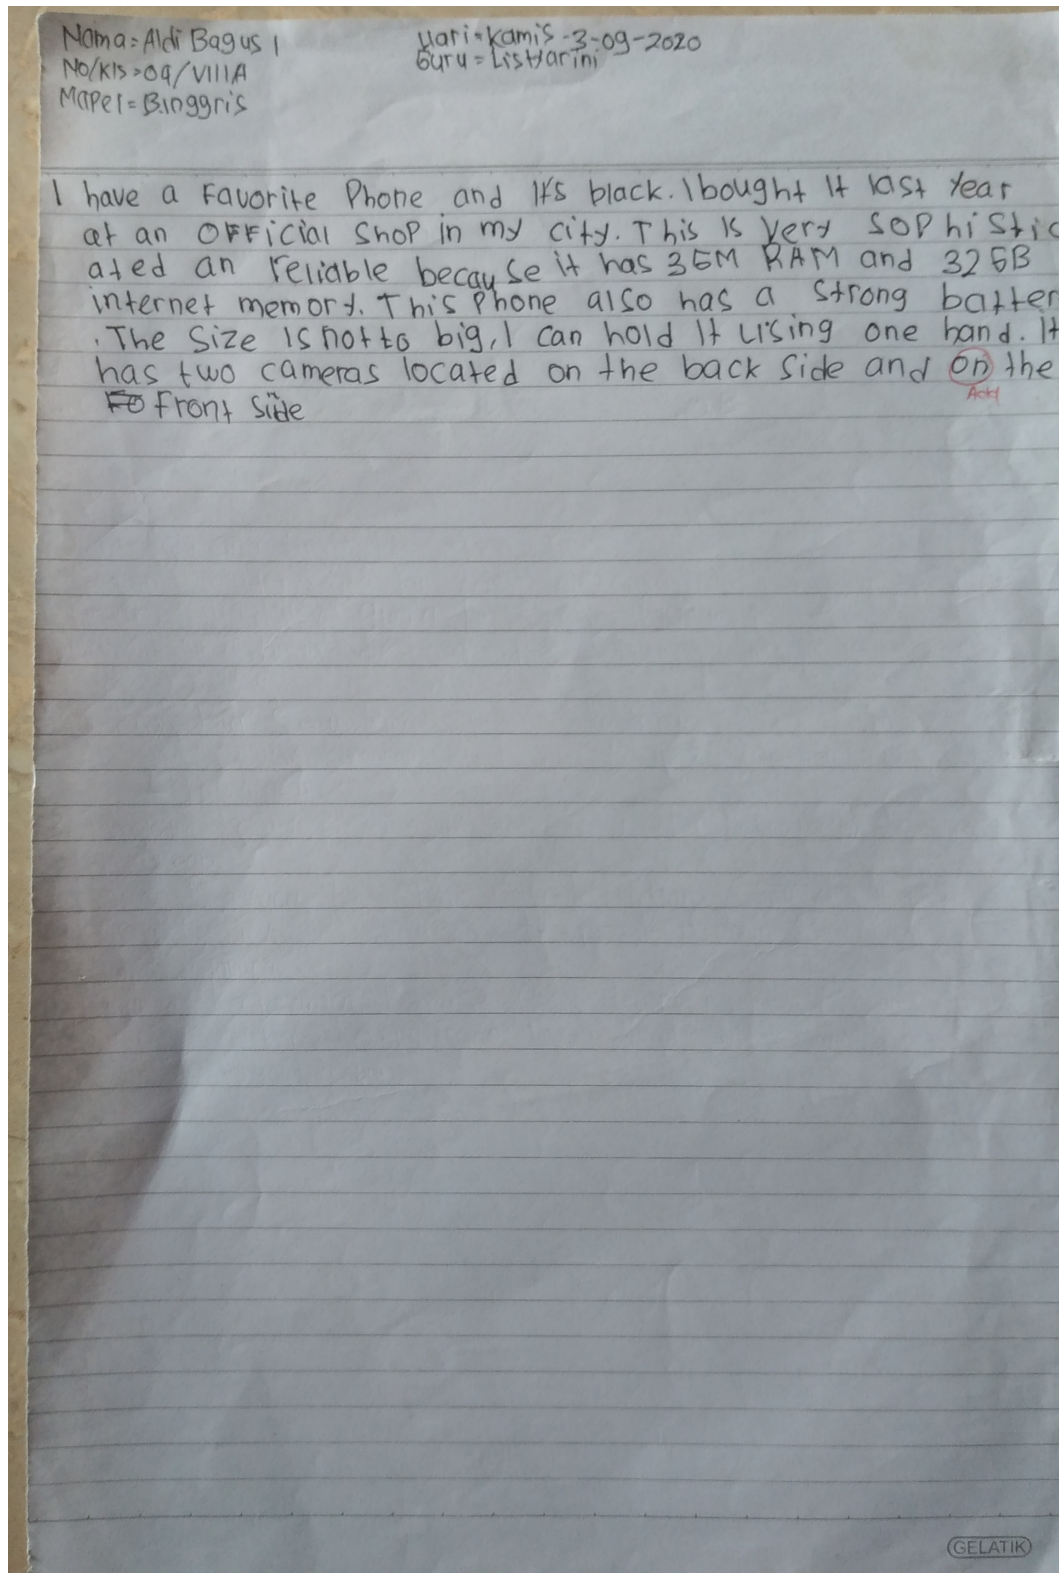 Nama = Aldi Bagus I
Hari = Kamis - 3-09-2020
No/Kls = 09/VIIIA
Guru = ListHarini
Mapel = B.inggris
I have a Favorite Phone and It's black. I bought It last Year
at an OFFicial Shop in my city. This Is Very SoPhistic
ated an reliable because it has 3GM RAM and 32GB
internet memory. This Phone also has a Strong batter
. The Size Is not to big, I can hold It Using one hand. It
has two cameras located on the back Side and on the
Add
Front Side
GELATIK